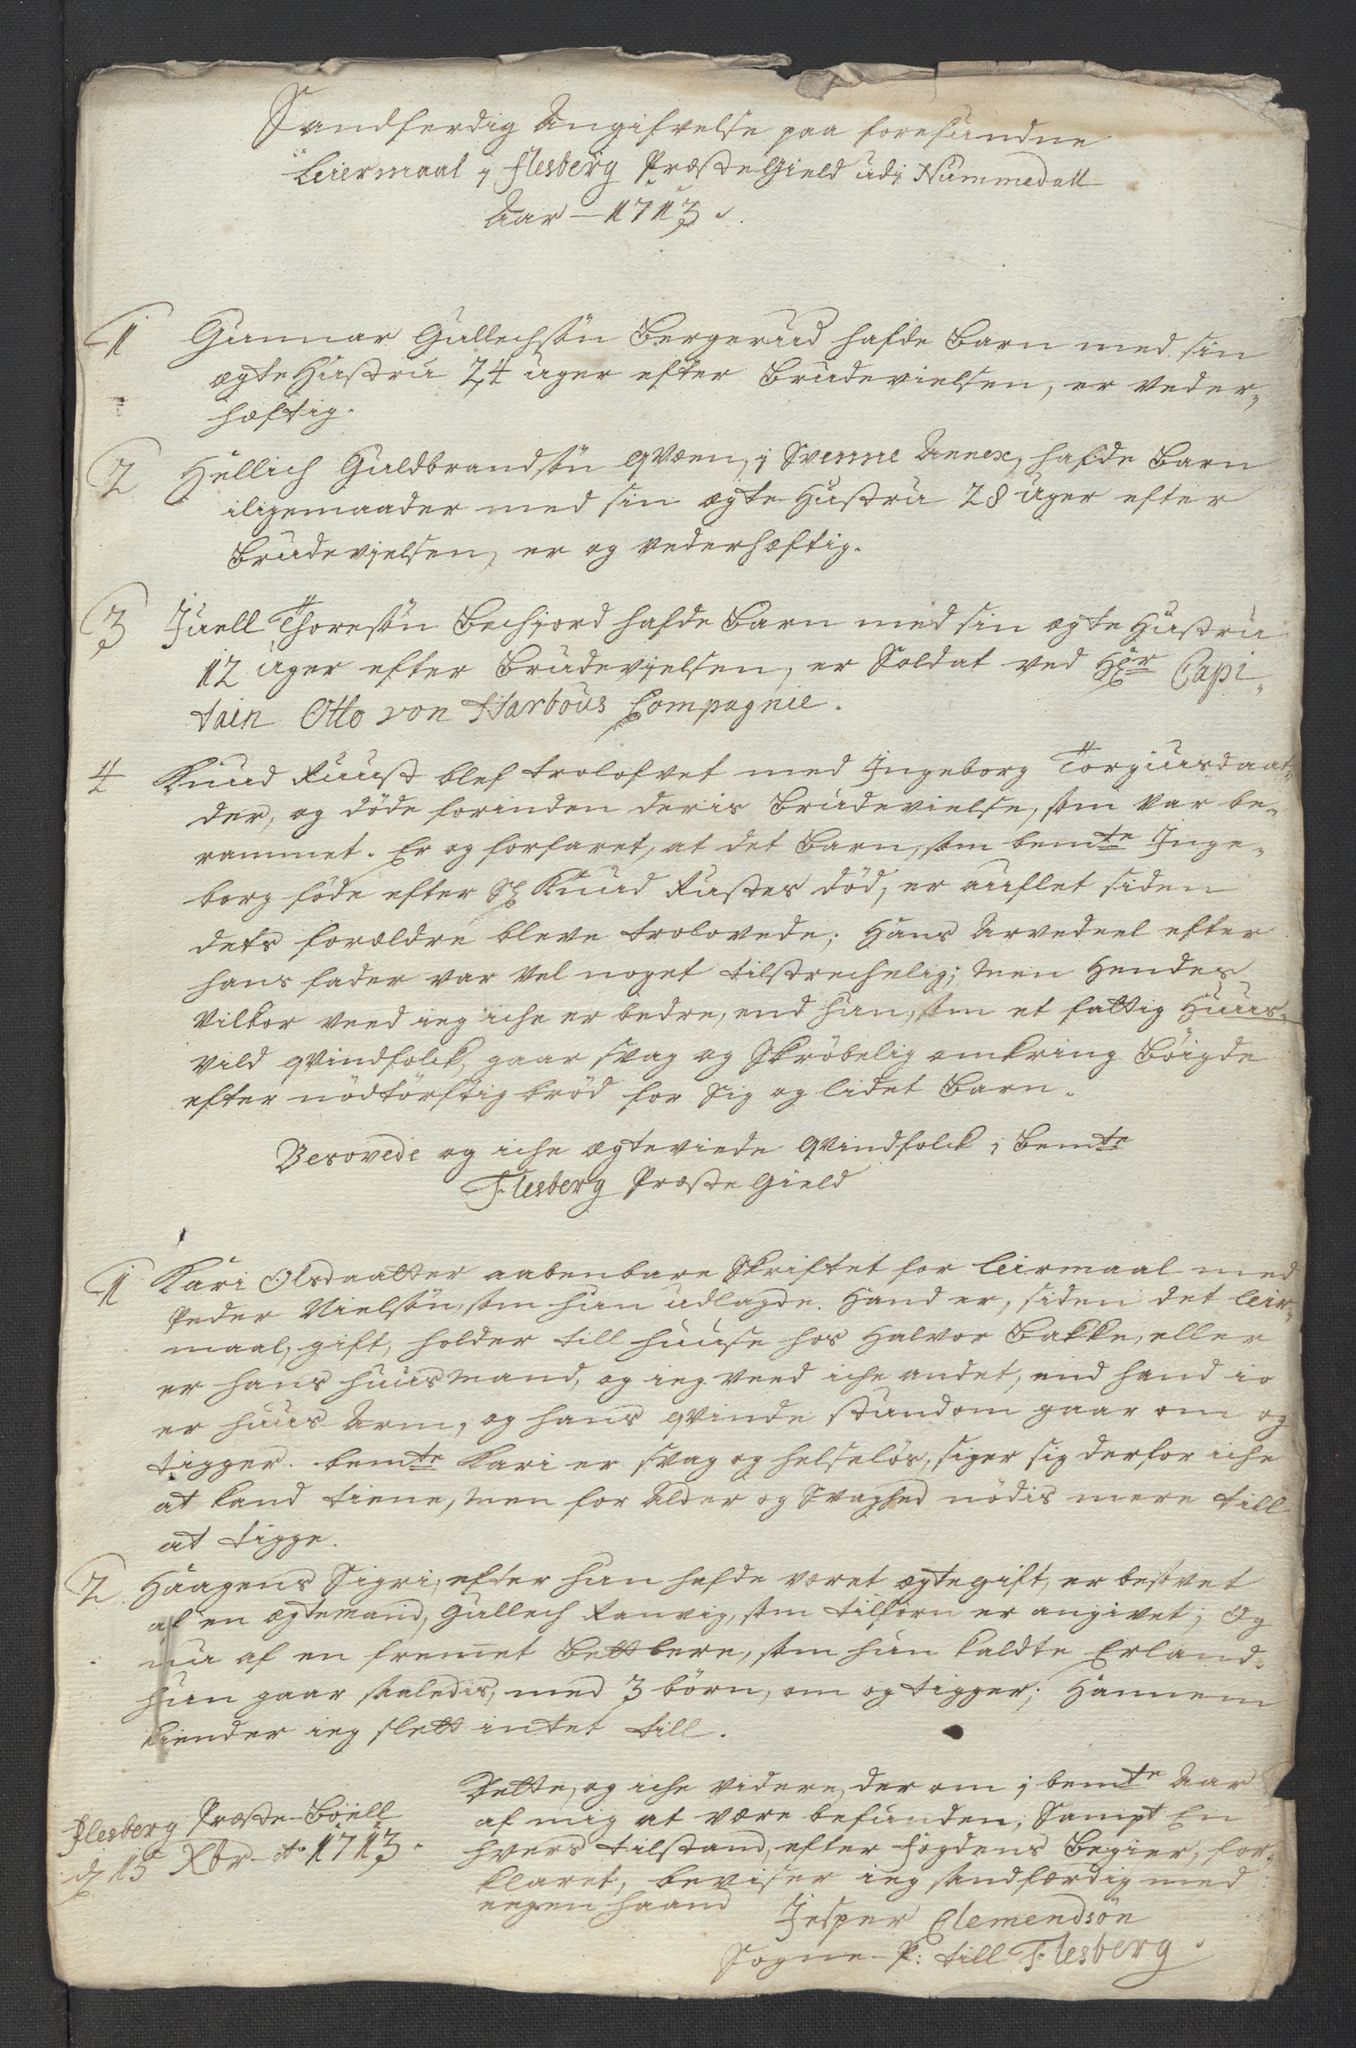 Sandferdig Angifvelse paa forefundne
Leiermaal j Flesberg PræsteGield udj Nummedall
Aar 1713.
1 Gunnar Gullechsön Bergerud hafde Barn med sin
ægte Hustru 24 uger efter Brudevielsen, er veder-
hæftig.
2 Hellich Guldbrandsön qvæen, j Svenne Annex, hafde Barn
iligemaader med sin ægte Hustru 28 uger efter
Brudevjelsen, er og vederhæftig.
3 Juell Thoresön Bechjord hafde Barn med sin ægte Hustru
12 uger efter Brudevjelsen, er Soldat ved Hr Capi-
tain Otto von Harbous Compagnie.
4 Knud Ruust blef trolofvet med Ingeborg Torgiusdaat-
der, og döde forinden deris Brudevielse, som var be-
rammet. Er og forfaret, at det Barn, som bemte Inge-
borg föde efter Sl Knud Rustes död, er auflet siden
dets forældre bleve trolovede; Hans Arvedeel efter
hans fader var vel noget tilstrechelig; Men Hendes
Vilkor veed ieg iche er bedre, end hun, som et fattig Huus-
vild qvindfolck, gaar svag og Skröbelig omkring Böigde
efter nödtörftig bröd for Sig og lidet Barn.
Besovede og iche ægteviede qvindfolck i Bemte
Flesberg Præste Gield
1 Kari Olsdaatter aabenbare Skriftet for leirmaal med
Peder Nielsön, som hun udlagde. Hand er, siden det leir-
maal, gift, holder till huuse hos Halvor Bakke, eller
er hans huusmand, og ieg veed iche andet, end hand io
er huus Arm, og hans qvinde stundom gaar om og
tigger. bemte Kari er svag og helselös, siger sig derfor iche
at kand tiene, Men for Alder og Svaghed nödis mere till
at tigge.
2 Haagens Sigri, efter hun hafde været ægtegift, er besovet
af en ægtemand, Gullech Ranvig, som tilforn er angivet; Og
nu af en fremet Bettlere, som hun kaldte Erland.
hun gaar saaledis, med 3 börn, om og tigger; Hannem
kiender ieg slett intet till.
Dette, og iche videre, der om j bemte Aar
af mig at være befunden; Sampt En
hvers tilstand, efter fogdens Begier, for-
klaret, beviser ieg sandfærdig med
egen haand
Flesberg Præste Böell
d 15 Xbr. Ao 1713.
Jesper Clemendsön
Sogne-P: till Flesberg.